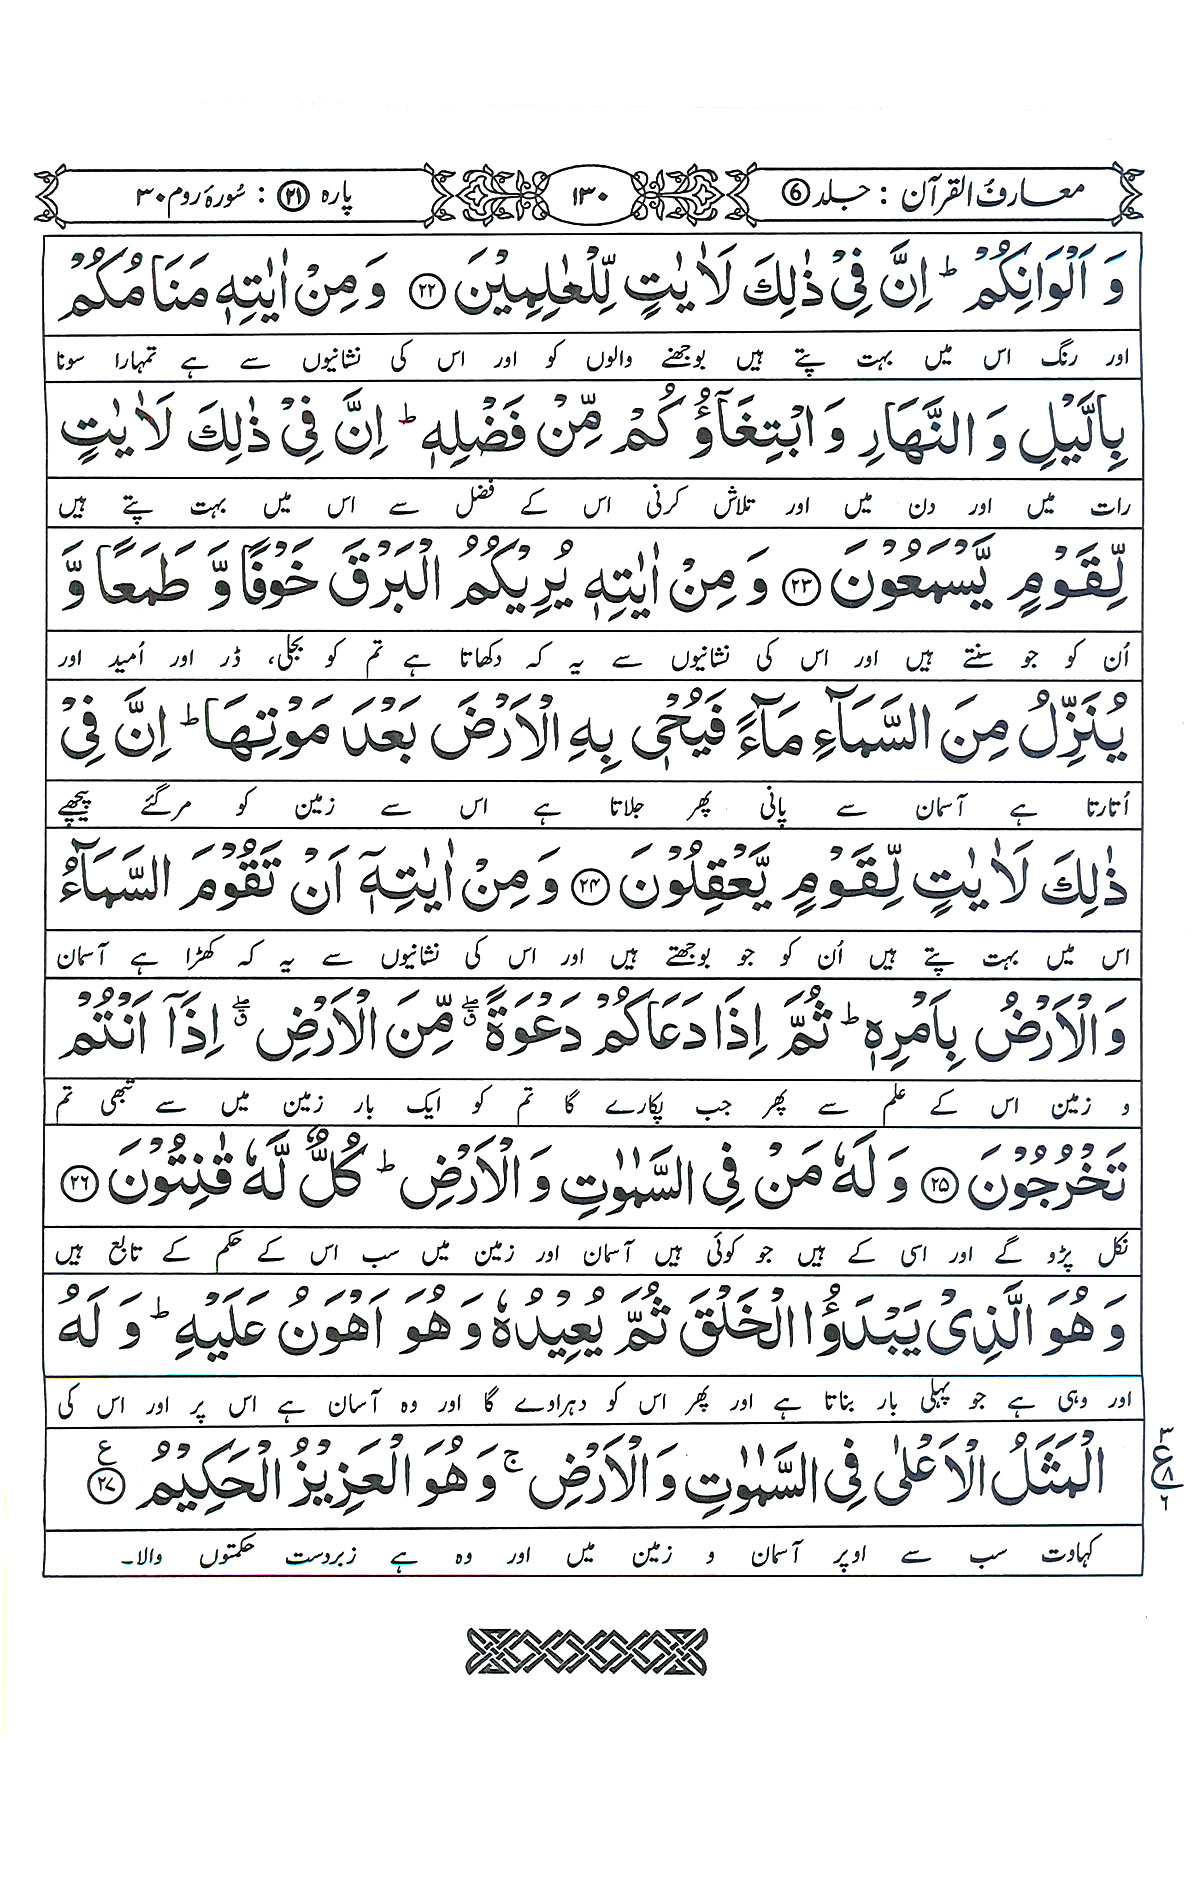 معارف القرآن : جلد ۶
۱۳۰
پارہ ۲۱ : سُورۂ روم ۳۰
وَ اَلْوَانِكُمْ ؕ اِنَّ فِیْ ذٰلِكَ لَاٰیٰتٍ لِّلْعٰلِمِیْنَ ۲۲ وَ مِنْ اٰیٰتِهٖ مَنَامُكُمْ
اور رنگ اس میں بہت پتے ہیں بوجھنے والوں کو اور اس کی نشانیوں سے ہے تمہارا سونا
بِالَّیْلِ وَ النَّهَارِ وَ ابْتِغَآؤُكُمْ مِّنْ فَضْلِهٖ ؕ اِنَّ فِیْ ذٰلِكَ لَاٰیٰتٍ
رات میں اور دن میں اور تلاش کرنی اس کے فضل سے اس میں بہت پتے ہیں
لِّقَوْمٍ یَّسْمَعُوْنَ ۲۳ وَ مِنْ اٰیٰتِهٖ یُرِیْكُمُ الْبَرْقَ خَوْفًا وَّ طَمَعًا وَّ
اُن کو جو سنتے ہیں اور اس کی نشانیوں سے یہ کہ دکھاتا ہے تم کو بجلی، ڈر اور اُمید اور
یُنَزِّلُ مِنَ السَّمَآءِ مَآءً فَیُحْیٖ بِهِ الْاَرْضَ بَعْدَ مَوْتِهَا ؕ اِنَّ فِیْ
اُتارتا ہے آسمان سے پانی پھر جلاتا ہے اس سے زمین کو مرگئے پیچھے
ذٰلِكَ لَاٰیٰتٍ لِّقَوْمٍ یَّعْقِلُوْنَ ۲۴ وَ مِنْ اٰیٰتِهٖۤ اَنْ تَقُوْمَ السَّمَآءُ
اس میں بہت پتے ہیں اُن کو جو بوجھتے ہیں اور اس کی نشانیوں سے یہ کہ کھڑا ہے آسمان
وَ الْاَرْضُ بِاَمْرِهٖ ؕ ثُمَّ اِذَا دَعَاكُمْ دَعْوَةً ۖۗ مِّنَ الْاَرْضِ ۖۗ اِذَاۤ اَنْتُمْ
و زمین اس کے علم سے پھر جب پکارے گا تم کو ایک بار زمین میں سے تبھی تم
تَخْرُجُوْنَ ۲۵ وَ لَهٗ مَنْ فِی السَّمٰوٰتِ وَ الْاَرْضِ ؕ كُلٌّ لَّهٗ قٰنِتُوْنَ ۲۶
نکل پڑو گے اور اسی کے ہیں جو کوئی ہیں آسمان اور زمین میں سب اس کے حکم کے تابع ہیں
وَ هُوَ الَّذِیْ یَبْدَؤُا الْخَلْقَ ثُمَّ یُعِیْدُهٗ وَ هُوَ اَهْوَنُ عَلَیْهِ ؕ وَ لَهُ
اور وہی ہے جو پہلی بار بناتا ہے اور پھر اس کو دہراوے گا اور وہ آسان ہے اس پر اور اس کی
الْمَثَلُ الْاَعْلٰی فِی السَّمٰوٰتِ وَ الْاَرْضِ ۚ وَ هُوَ الْعَزِیْزُ الْحَكِیْمُ ۲۷ ع
۳ ع ۸ ۶
کہاوت سب سے اوپر آسمان و زمین میں اور وہ ہے زبردست حکمتوں والا۔